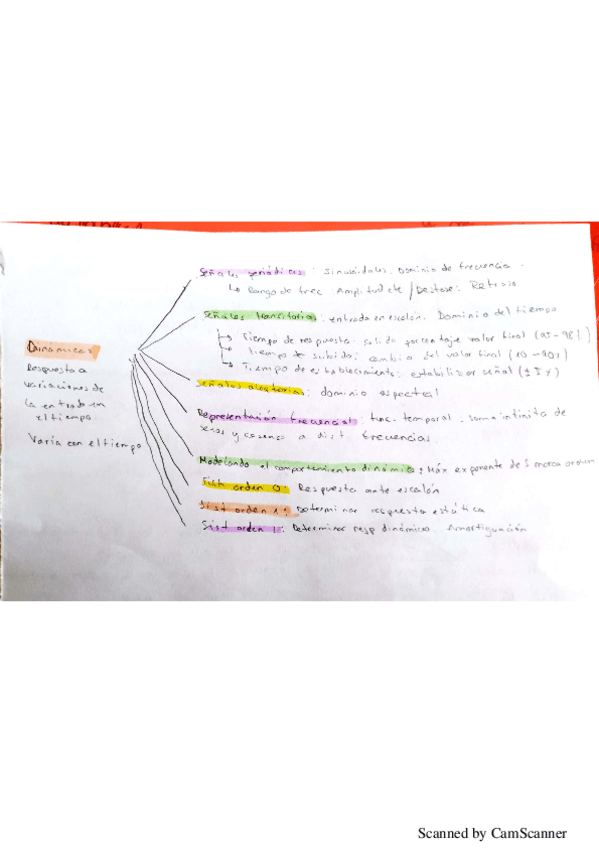 Señales periódicas: Sinusoidales. Dominio de frecuencia.
↳ Rango de frec. Amplitud cte / Desfase: Retraso
Señales transitorias: entrada en escalón. Dominio del tiempo
↳ Tiempo de respuesta. Salida porcentaje valor final (95-98%)
↳ Tiempo de subida: cambio del valor final (10-90%)
↳ Tiempo de establecimiento: estabilizar señal
Dinámicas
Respuesta a
variaciones de
la entrada en
el tiempo
Varía con el tiempo
Señales aleatorias: dominio espectral
Representación frecuencial: func. temporal: suma infinita de
senos y cosenos a dist. frecuencias
Modelando el comportamiento dinámico: Máx exponente de S marca orden
orden 0: Respuesta ante escalón
Sist orden 1: Determinar respuesta estática
Sist orden 1: Determinar resp dinámico. Amortiguación
Scanned by CamScanner